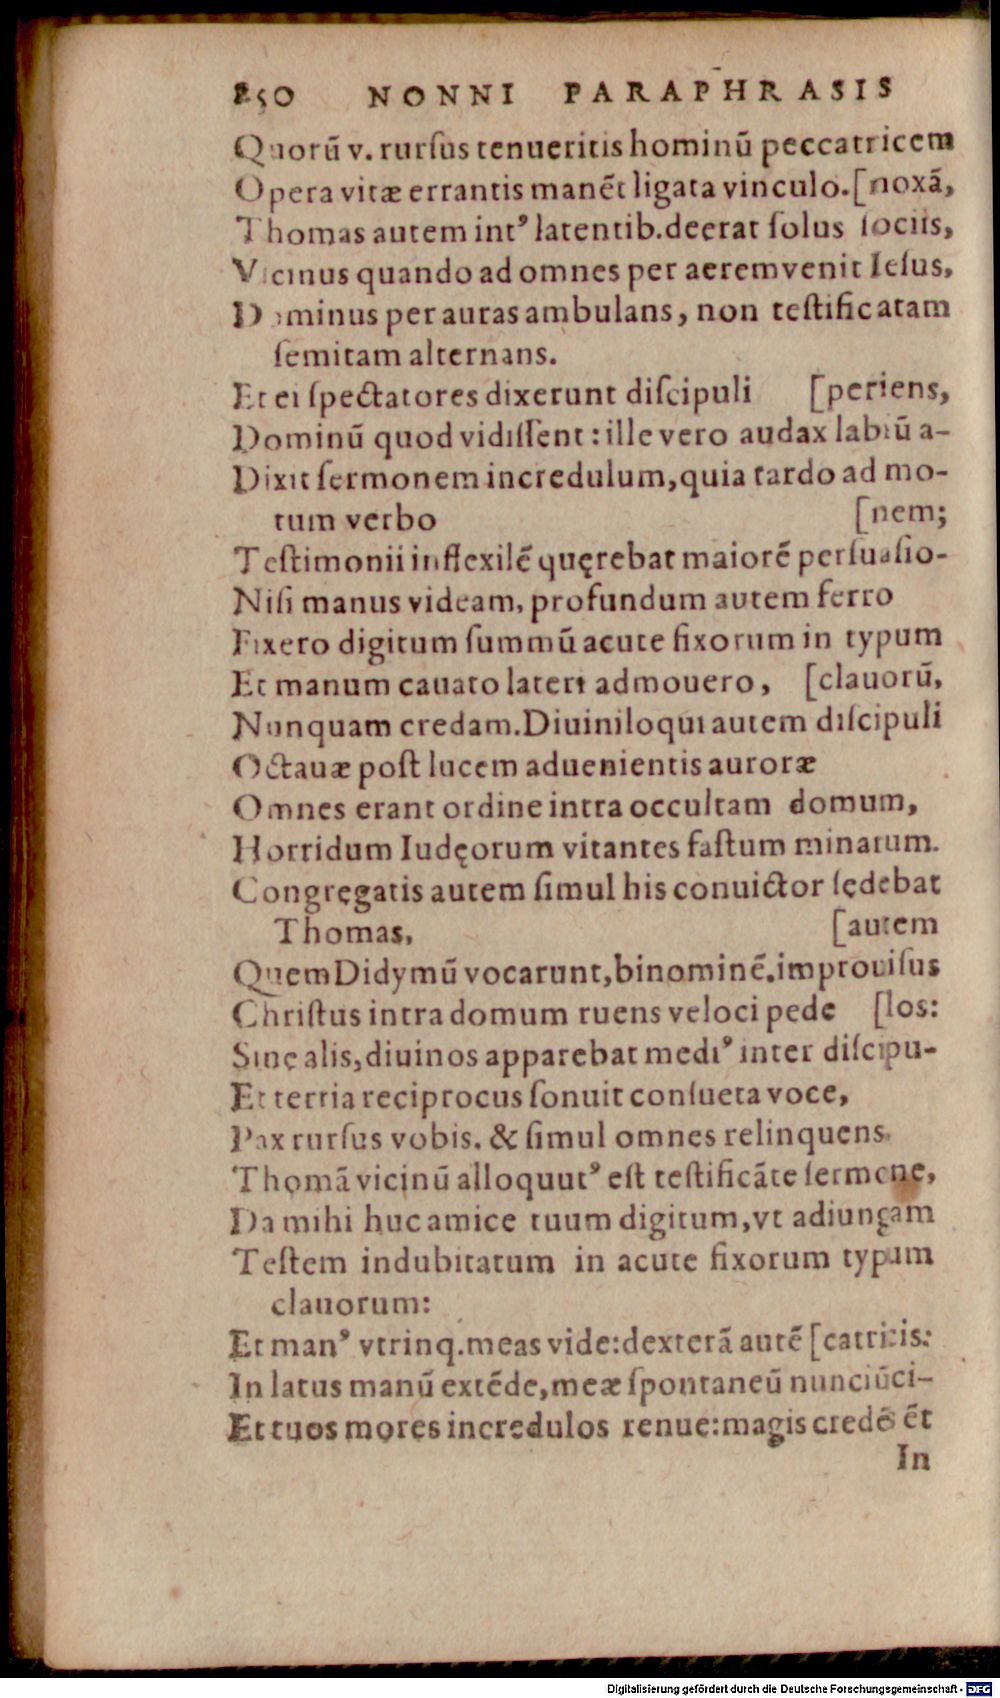 250 NONNI PARAPHRASIS
Quorũ v. rurſus tenueritis hominũ peccatricem
Opera vitæ errantis manẽt ligata vinculo. [noxã,
Thomas autem int⁹ latentib. deerat ſolus ſociis,
Vicinus quando ad omnes per aerem venit Ieſus,
Dominus per auras ambulans, non teſtificatam
ſemitam alternans.
Et ei ſpectatores dixerunt diſcipuli [periens,
Dominũ quod vidiſſent: ille vero audax labiũ a-
Dixit ſermonem incredulum, quia tardo ad mo-
tum verbo [nem;
Teſtimonii inflexilẽ quęrebat maiorẽ perſuaſio-
Niſi manus videam, profundum autem ferro
Fixero digitum ſummũ acute fixorum in typum
Et manum cauato lateri admouero, [clauorũ,
Nunquam credam. Diuiniloqui autem diſcipuli
Octauæ poſt lucem aduenientis auroræ
Omnes erant ordine intra occultam domum,
Horridum Iudęorum vitantes faſtum minatum.
Congręgatis autem ſimul his conuictor ſędebat
Thomas, [autem
Quem Didymũ vocarunt, binominẽ. improuiſus
Chriſtus intra domum ruens veloci pede [los:
Sinę alis, diuinos apparebat medi⁹ inter diſcipu-
Et tertia reciprocus ſonuit conſueta voce,
Pax rurſus vobis. & ſimul omnes relinquens
Thomã vicinũ alloquut⁹ eſt teſtificãte ſermone,
Da mihi huc amice tuum digitum, vt adiungam
Teſtem indubitatum in acute fixorum typum
clauorum:
Et man⁹ vtrinq. meas vide: dexterã autẽ [catricis:
In latus manũ extẽde, meæ ſpontaneũ nunciũ ci-
Et tuos mores incredulos renue: magis credẽs ẽt
In
Digitalisierung gefördert durch die Deutsche Forschungsgemeinschaft - DFG